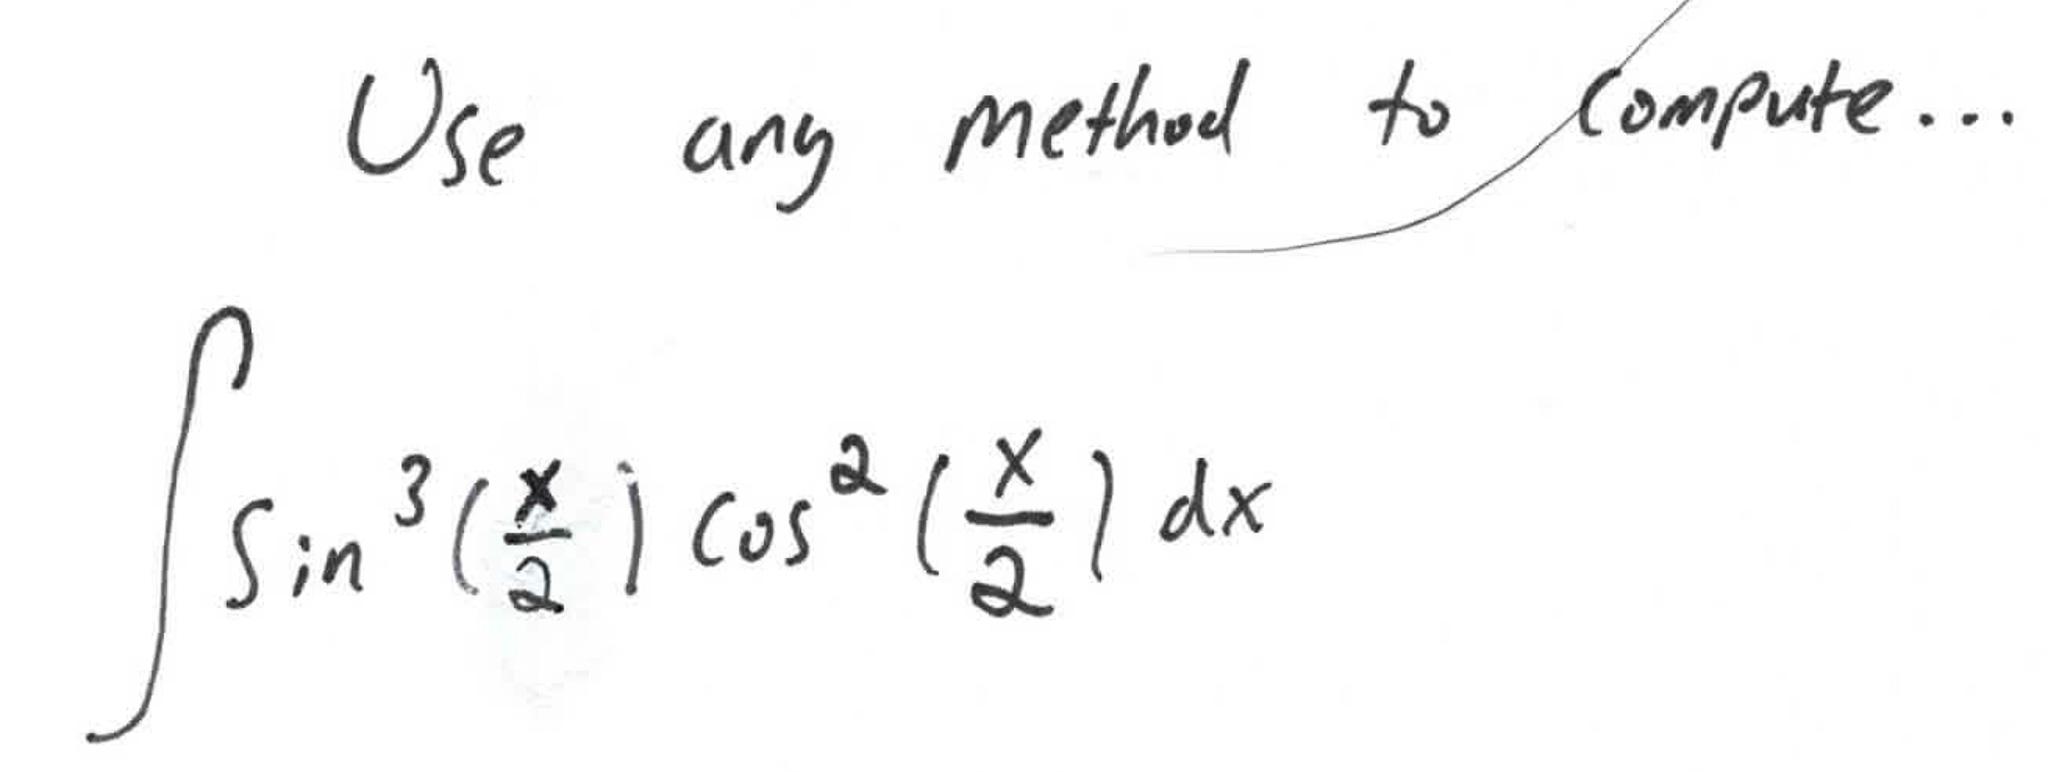 Use any method to compute...
∫ sin³(x/2) cos²(x/2) dx